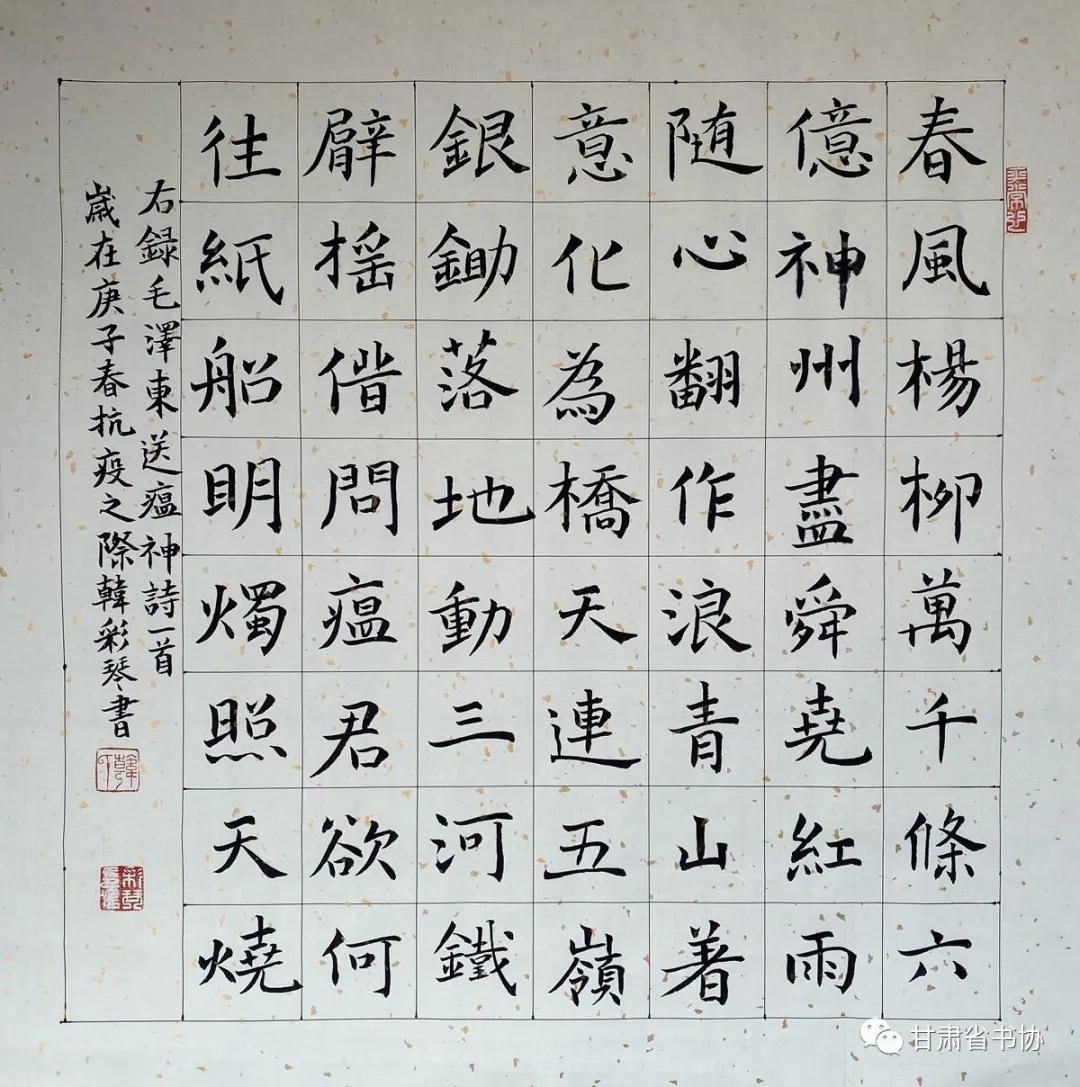 春風楊柳萬千條六
億神州盡舜堯紅雨
随心翻作浪青山着
意化為橋天連五嶺
銀鋤落地動三河鐵
臂摇借問瘟君欲何
往紙船明燭照天燒
右録毛澤東送瘟神詩一首
歳在庚子春抗疫之際韓彩琴書
甘肃省书协